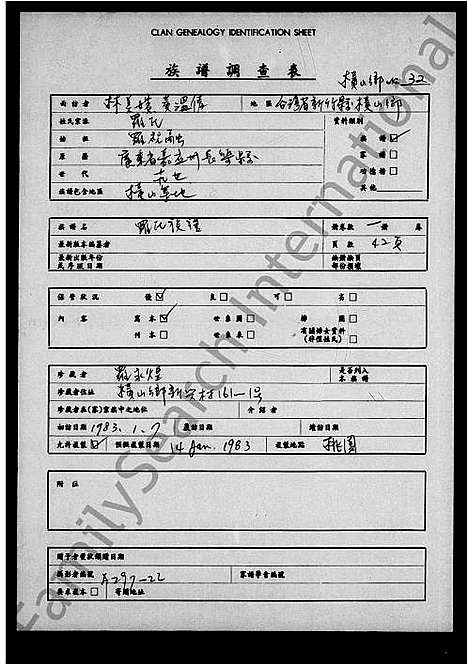 CLAN GENEALOGY IDENTIFICATION SHEET
族譜調查表
橫山鄉 32
面訪者 林美嬌 黃溫偉 地區 台灣省新竹縣橫山鄉
姓氏宗派 羅氏 資料類別
始祖 族譜☑
原籍 廣東省嘉應州長樂縣 家譜□
世代 功德譜□
族譜包含地區 橫山等地 其他
族譜名 羅氏族譜 冊卷數 一 冊 卷
最新版本編纂者 頁數 42頁
最新出版年份
或序跋日期
保管狀況 優☑ 良□ 可□ 劣□
內容 寫本☑ 世系圖□ 排圖□
刊本□ 世系表□ 有關婦女資料
珍藏者 羅永煌 是否列入
本族譜
珍藏者住址 橫山鄉新興村161-1号
珍藏者在(家)宗族中之地位 介紹者
初訪日期 1983.1.7 覆訪日期 續訪日期
允許複製☑ 預擬複製日期 14 Jan. 1983 複製地點 桃園
附註
贈予者贊獻微贈日期
攝影者編號 A297-22 家譜學會編號
要求還本□ 寄還地址
FamilySearch International